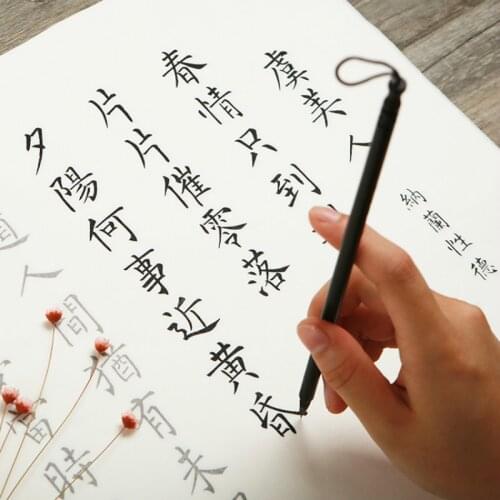 納蘭性德
虞美人
春情只到
片片催零落
夕陽何事近黃昏
人間猶有未
當時